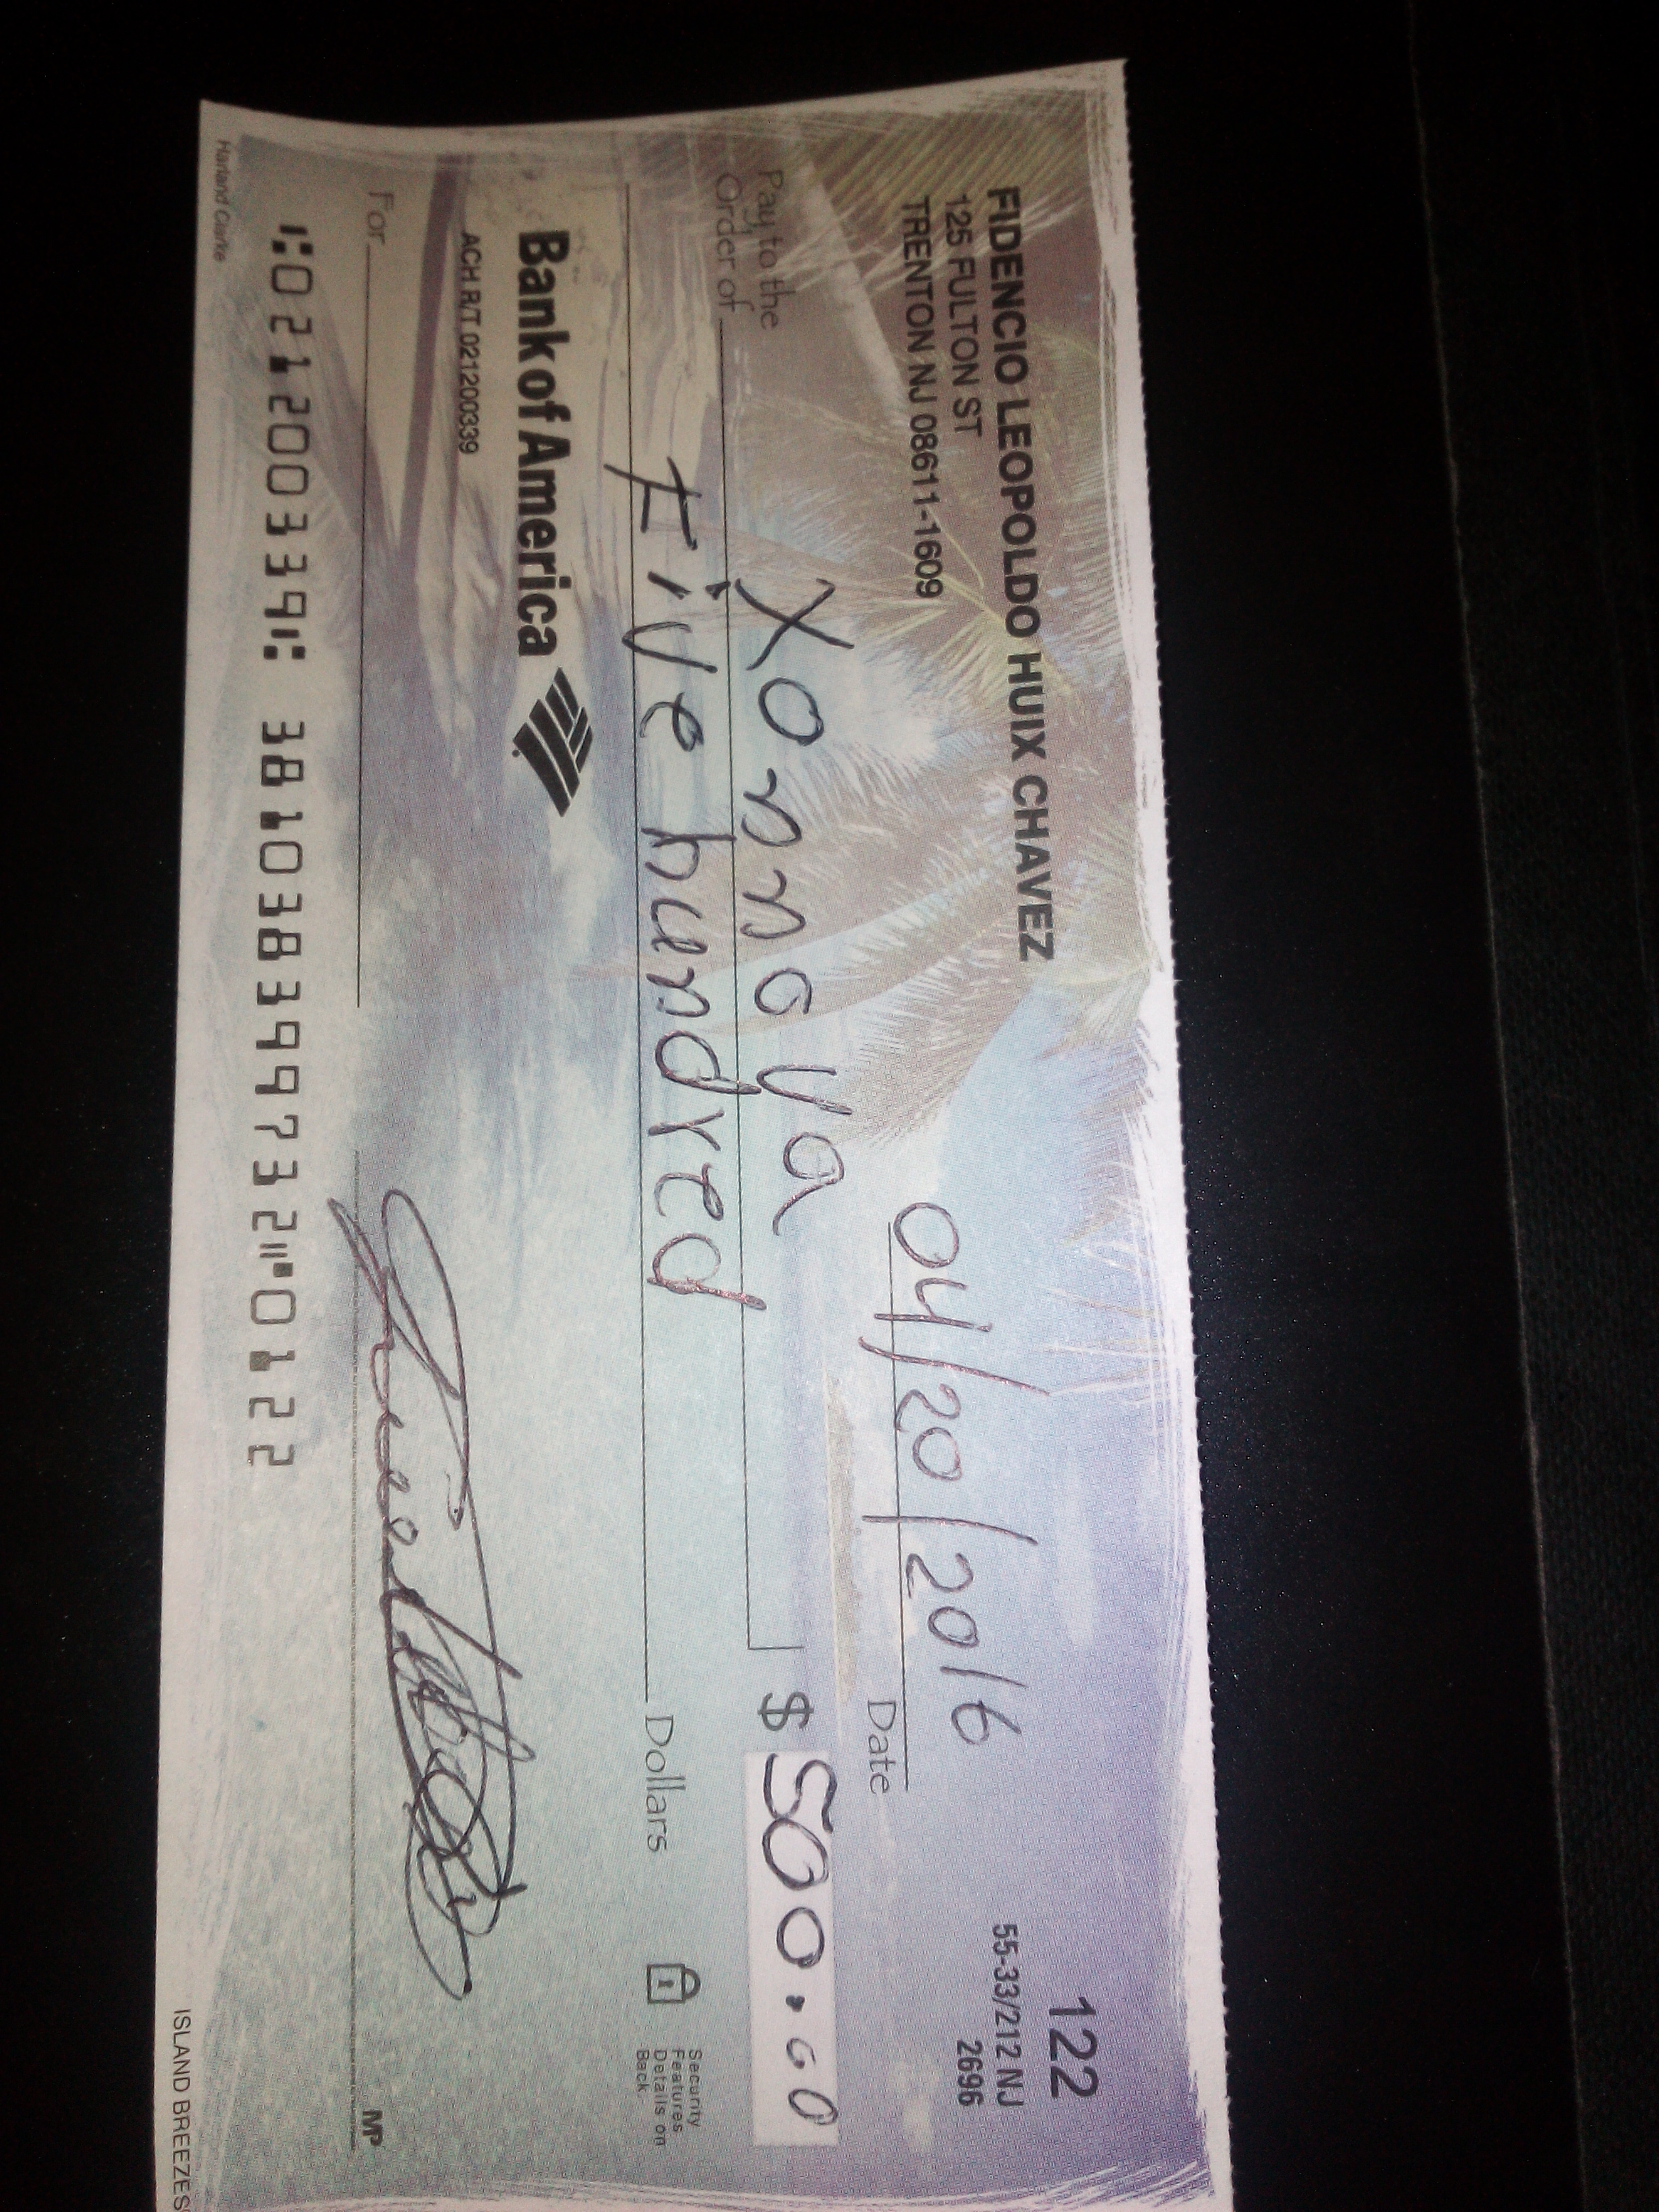 FIDENCIO LEOPOLDO HUIX CHAVEZ
125 FULTON ST
TRENTON NJ 08611-1609
122
55-33/212 NJ
2696
04/20/2016
Date
Pay to the
Order of Xonnoya
$ 500.00
Five hundred Dollars
Security
Features
Details on
Back.
Bank of America
ACH R/T 021200339
For
MP
⑆021200339⑆ 381038399732⑈0122
Harland Clarke
ISLAND BREEZES